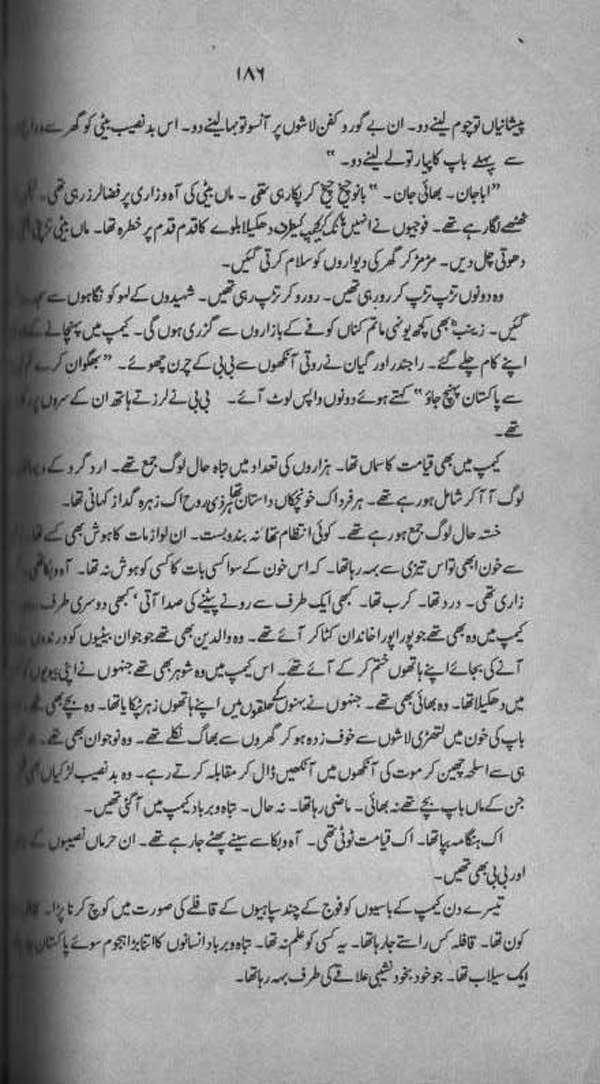 ۱۸۶
پیشانیاں تو چوم لینے دو۔ ان بے گور و کفن لاشوں پر آنسو تو بہا لینے دو۔ اس بد نصیب بیٹی کو گھر سے
سے پہلے باپ کا پیار تو لے لینے دو۔ "
"ابا جان۔ بھائی جان۔ " بانو چیخ چیخ کر پکار رہی تھی ۔ ماں بیٹی کی آہ و زاری پر فضا لرز رہی تھی۔
ٹھٹھے لگا رہے تھے۔ فوجیوں نے انہیں کیمپ کیطرف دھکیلا بلوے کا قدم قدم پر خطرہ تھا۔ ماں بیٹی
دھوتی چل دیں۔ مڑ مڑ کر گھر کی دیواروں کو سلام کرتی گئیں۔
وہ دونوں تڑپ تڑپ کر رو رہی تھیں۔ رو رو کر تڑپ رہی تھیں۔ شہیدوں کے لہو کو نگاہوں سے
گئیں۔ زینبؓ بھی کچھ یونہی ماتم کناں کوفے کے بازاروں سے گزری ہوں گی۔ کیمپ میں پہنچانے کے
اپنے کام چلے گئے۔ راجندر اور گیان نے روتی آنکھوں سے بی بی کے چرن چھوئے۔ "بھگوان کرے
سے پاکستان پہنچ جاؤ" کہتے ہوئے دونوں واپس لوٹ آئے۔ بی بی نے لرزتے ہاتھ ان کے سروں پر
تھے۔
کیمپ میں بھی قیامت کا سماں تھا۔ ہزاروں کی تعداد میں تباہ حال لوگ جمع تھے۔ ارد گرد کے
لوگ آ آ کر شامل ہو رہے تھے۔ ہر فرد اک خونچکاں داستان تھا ہر ذی روح اک زہرہ گداز کہانی تھا۔
خستہ حال لوگ جمع ہو رہے تھے۔ کوئی انتظام تھا نہ بندوبست۔ ان لوازمات کا ہوش بھی کسے تھا
سے خون ابھی تو اس تیزی سے بہہ رہا تھا۔ کہ اس خون کے سوا کسی بات کا کسی کو ہوش نہ تھا۔ آہ و بکا تھی۔
زاری تھی۔ درد تھا۔ کرب تھا۔ کبھی ایک طرف سے رونے پیٹنے کی صدا آتی ' کبھی دوسری طرف
کیمپ میں وہ بھی تھے جو پورا پورا خاندان کٹا کر آئے تھے۔ وہ والدین بھی تھے جو جوان بیٹیوں کو درندوں
آنے کی بجائے اپنے ہاتھوں ختم کر کے آئے تھے۔ اس کیمپ میں وہ شوہر بھی تھے جنہوں نے اپنی بیویوں
میں دھکیلا تھا۔ وہ بھائی بھی تھے۔ جنہوں نے بہنوں کے حلقوں میں اپنے ہاتھوں زہر ٹپکایا تھا۔ وہ بچے بھی تھے
باپ کی خون میں لتھڑی لاشوں سے خوف زدہ ہو کر گھروں سے بھاگ نکلے تھے۔ وہ نوجوان بھی تھے۔
ہی سے اسلحہ چھین کر موت کی آنکھوں میں آنکھیں ڈال کر مقابلہ کرتے رہے۔ وہ بد نصیب لڑکیاں بھی
جن کے ماں باپ بچے تھے نہ بھائی۔ ماضی رہا تھا۔ نہ حال۔ تباہ و برباد کیمپ میں آ گئی تھیں۔
اک ہنگامہ بپا تھا۔ اک قیامت ٹوٹی تھی۔ آہ و بکا سے سینے پھٹے جا رہے تھے۔ ان حرماں نصیبوں کے
اور بی بی بھی تھیں۔
تیسرے دن کیمپ کے باسیوں کو فوج کے چند سپاہیوں کے قافلے کی صورت میں کوچ کرنا پڑا۔
کون تھا۔ قافلہ کس راستے جا رہا تھا۔ یہ کسی کو علم نہ تھا۔ تباہ و برباد انسانوں کا اتنا بڑا ہجوم سوئے پاکستان
ایک سیلاب تھا۔ جو خود بخود نشیبی علاقے کی طرف بہہ رہا تھا۔